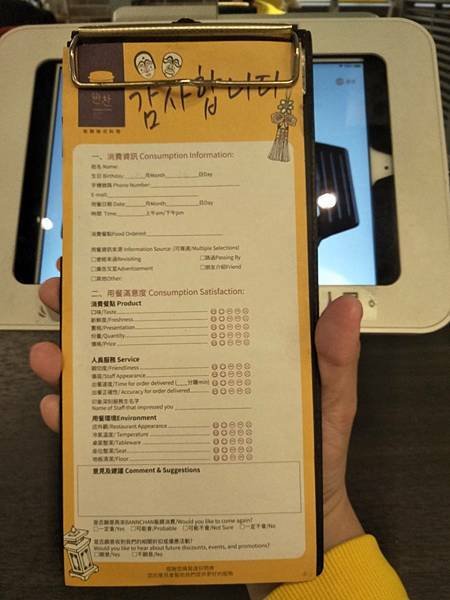 반찬
감사합니다
一、消費資訊 Consumption Information:
姓名 Name:
生日 Birthday: 月Month 日Day
手機號碼 Phone Number:
E-mail:
用餐日期 Date: 月Month 日Day
時間 Time 上午am/下午pm
消費餐點Food Ordered:
用餐資訊來源 Information Source (可複選/Multiple Selections)
□曾經來過Revisiting □路過Passing By
□廣告文宣Advertisement □朋友介紹Friend
□其他Other:
二、用餐滿意度 Consumption Satisfaction:
消費餐點 Product
口味/Taste
新鮮度/Freshness
賣相/Presentation
份量/Quantity
價格/Price
人員服務 Service
親切度/Friendliness
儀容/Staff Appearance
出餐速度/Time for order delivered (分鐘min)
出餐正確性/ Accuracy for order delivered
印象深刻服務生名字
Name of Staff that impressed you
用餐環境Environment
店外觀/Restaurant Appearance
冷氣溫度/ Temperature
桌面整潔/Tableware
座位整潔/Seat
地板清潔/Floor
意見及建議 Comment & Suggestions
是否願意再來BANNCHAN飯饌消費/Would you like to come again?
□一定會/Yes □可能會/Probable □可能不會/Not Sure □一定不會/No
是否願意收到我們的相關折扣或優惠活動?
Would you like to hear about future discounts, events, and promotions?
□願意/Yes □不願意/No